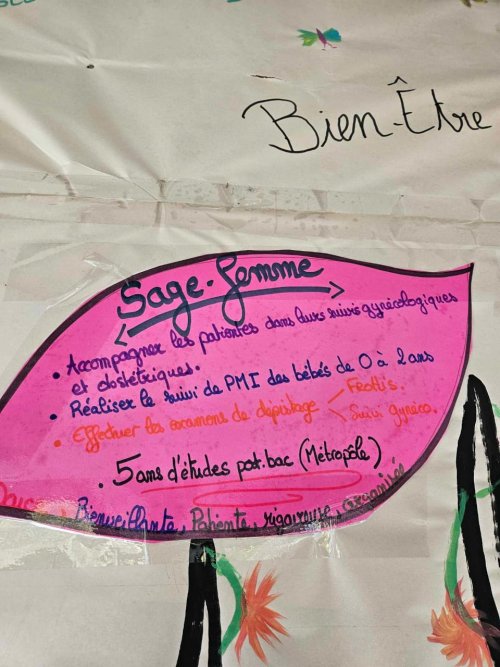 Bien-Être
Sage-femme
• Accompagner les patientes dans leurs suivis gynécologiques
et obstétriques.
• Réaliser le suivi de PMI des bébés de 0 à 2 ans
• Effectuer les examens de dépistage
Frottis.
Suivi gynéco.
• 5 ans d'études post-bac (Métropole)
Bienveillante, Patiente, rigoureuse, organisée